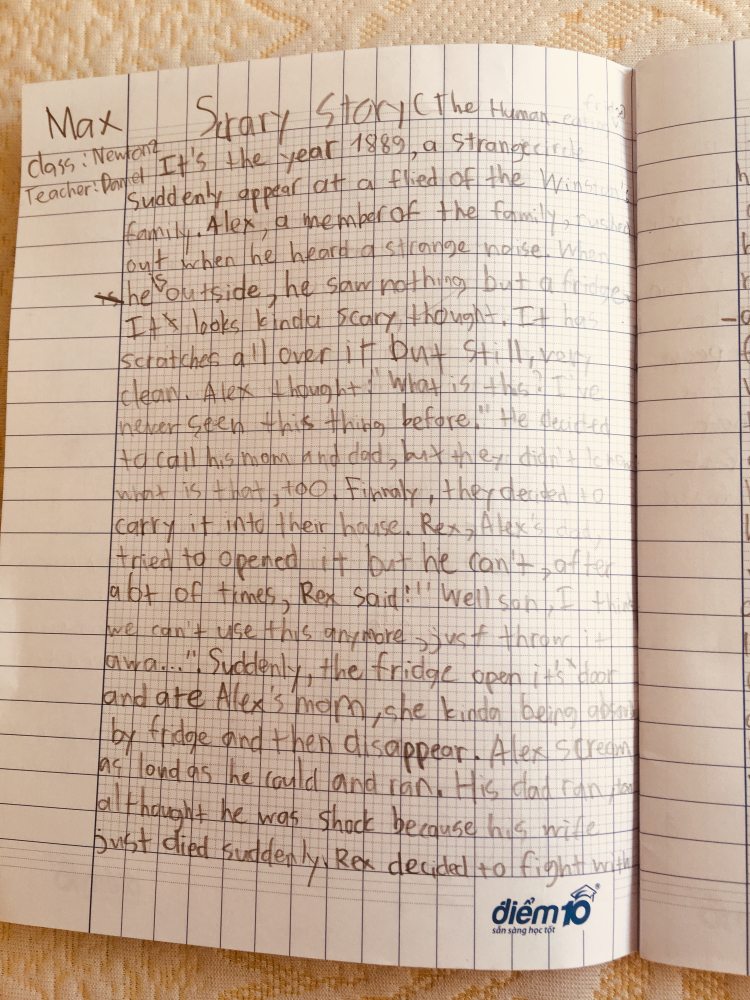 Max Scrary Story (The Human-eating fridge)
Class: Newton2
Teacher: Daniel
It's the year 1889, a strange circle
suddenly appear at a flied of the Winston's
family. Alex, a member of the family, rushed
out when he heard a strange noise. When
he is outside, he saw nothing but a fridge.
It looks kinda scary thought. It has
scratches all over it but still, very
clean. Alex thought: "What is this? I've
never seen this thing before." He decided
to call his mom and dad, but they didn't know
what is that, too. Finnaly, they decided to
carry it into their house. Rex, Alex's dad,
tried to opened it but he can't, after
a lot of times, Rex said: "Well son, I think
we can't use this anymore, just throw it
awa...". Suddenly, the fridge open it's door
and ate Alex's mom, she kinda being absorb
by fridge and then disappear. Alex scream
as loud as he could and ran. His dad ran, too
althought he was shock because his wife
just died suddenly, Rex decided to fight with
điểm 10
sẵn sàng học tốt